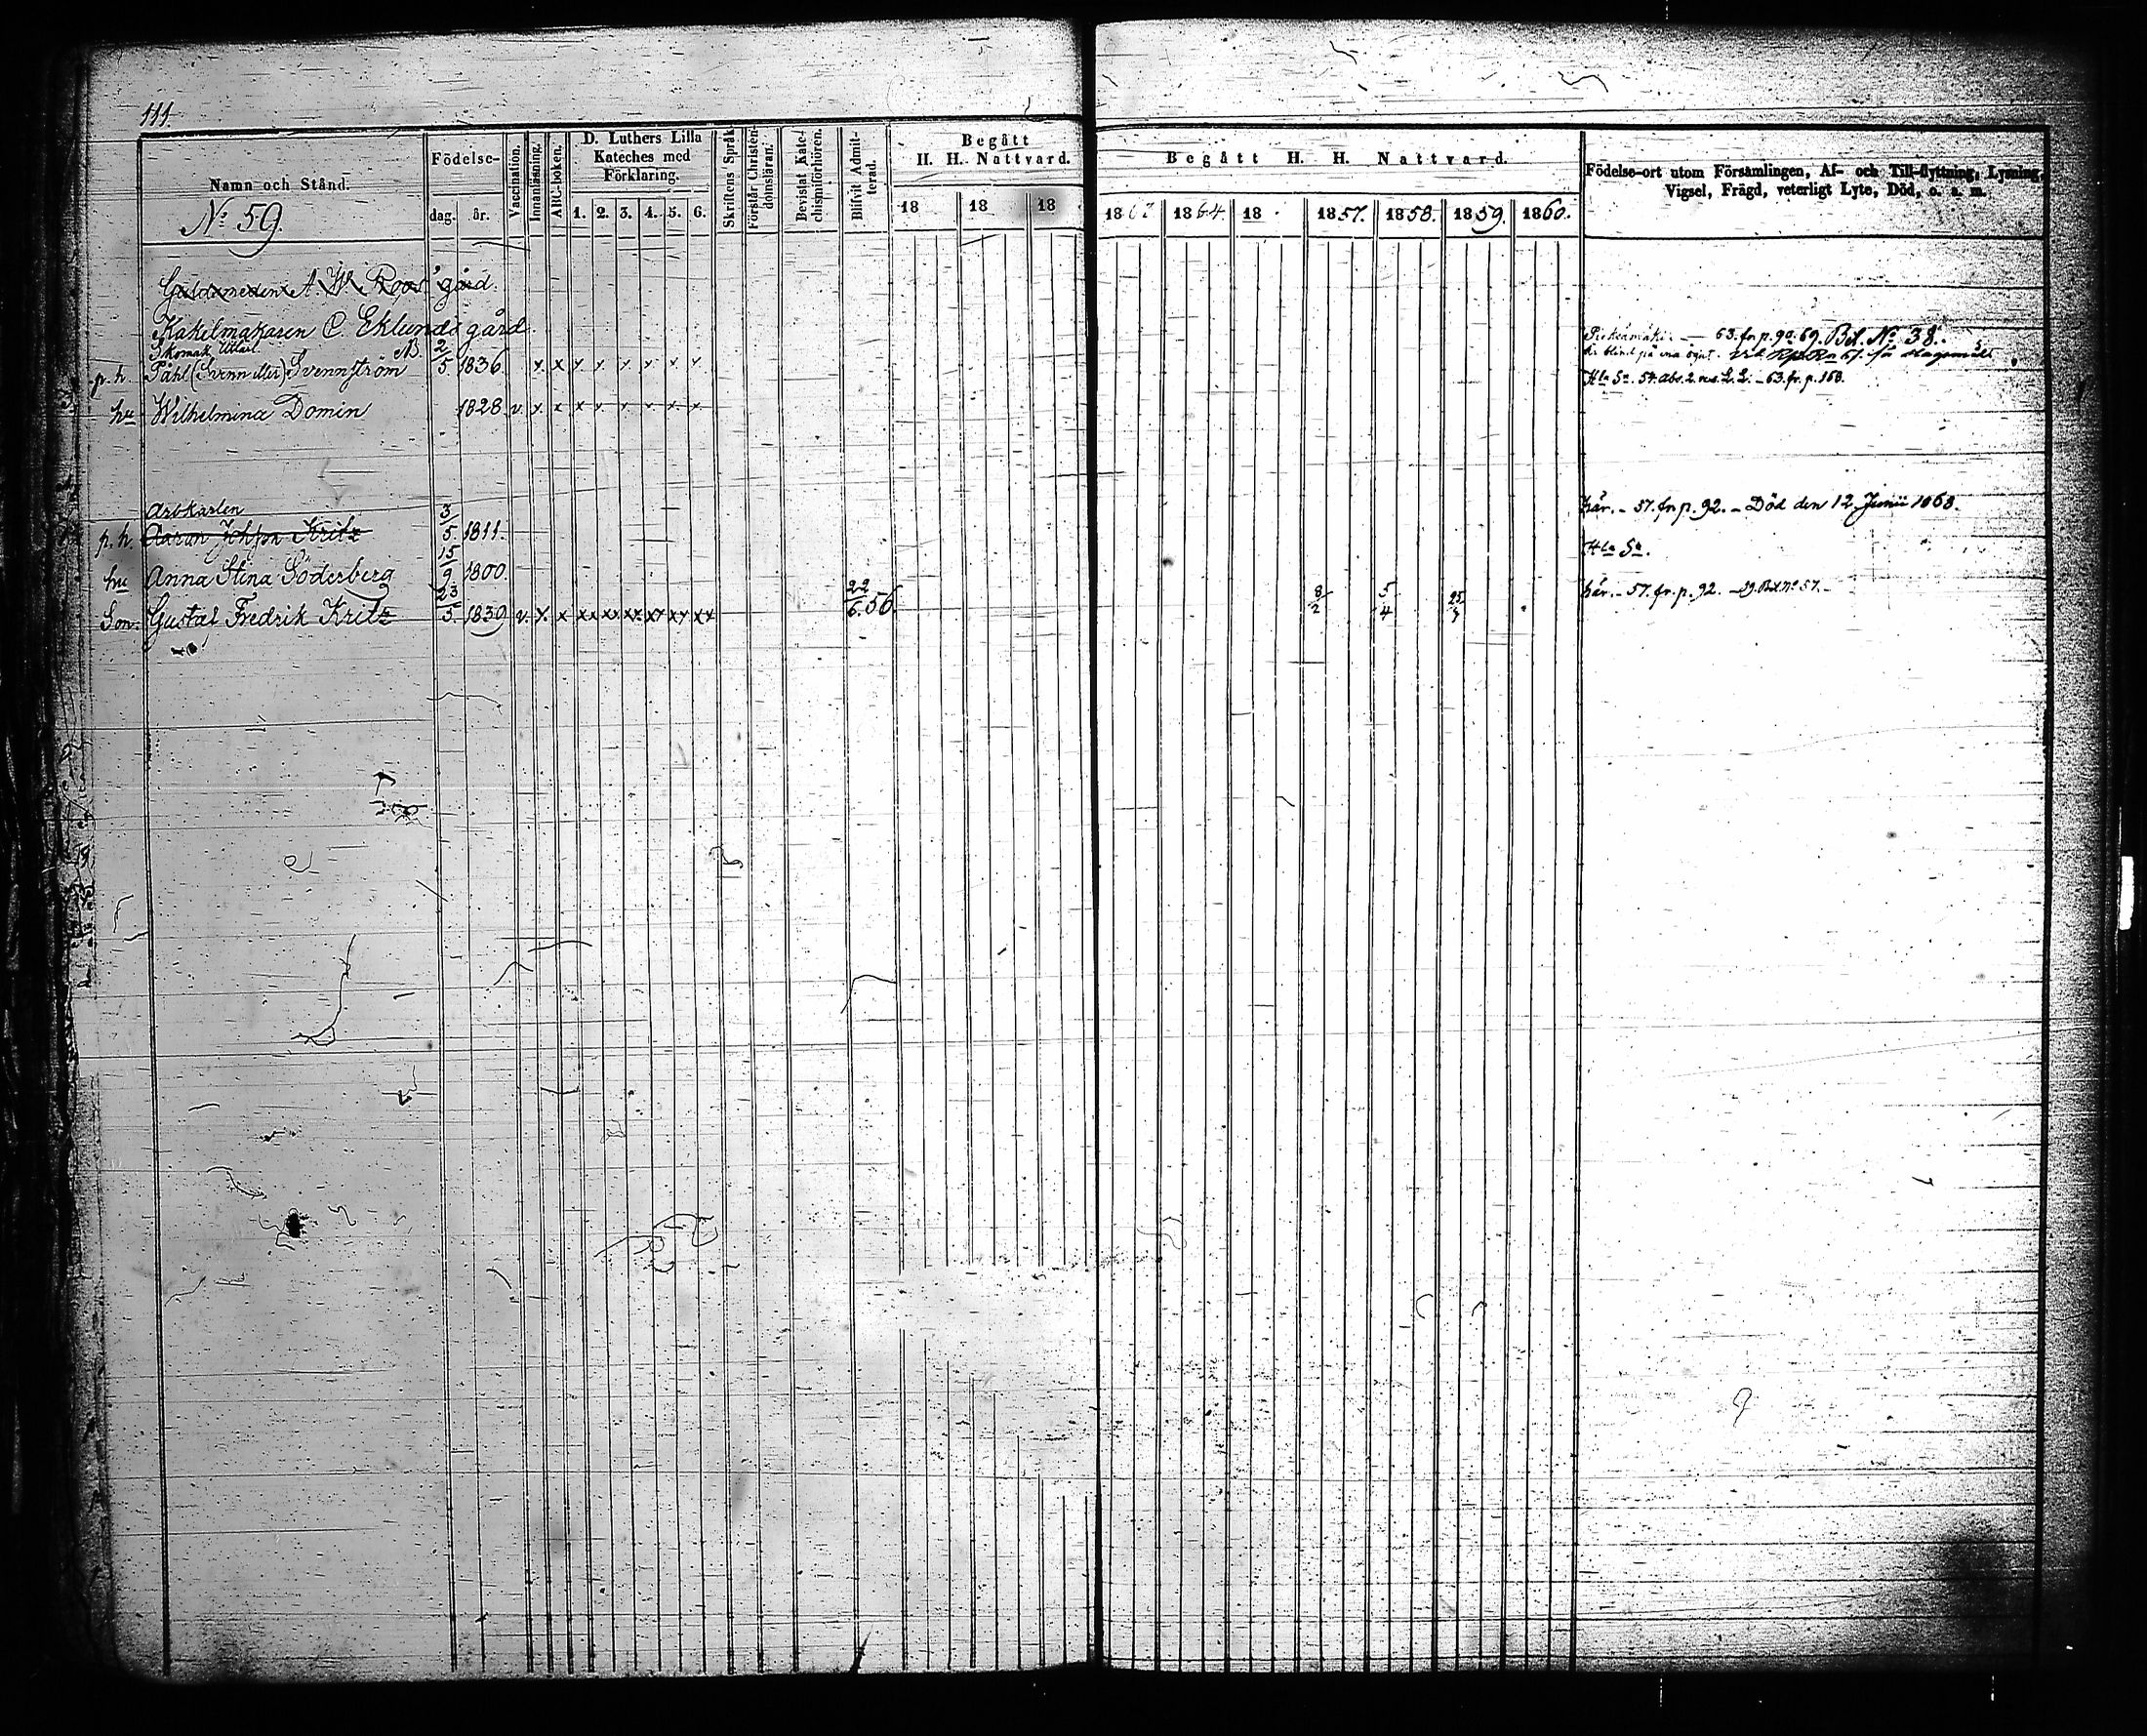 111
Namn och Stånd.
No 59.
Födelse-
dag. år.
Vaccination.
Innanläsning.
ABC-boken.
D. Luthers Lilla
Kateches med
Förklaring.
1. 2. 3. 4. 5. 6.
Skriftens Språk.
Förstår Christen-
domsläran.
Bevistat Kate-
chismiförhören.
Blifvit Admit-
terad.
Begått
H. H. Nattvard.
18 18 18
Begått H. H. Nattvard.
18 1864 18 1857. 1858. 1859. 1860.
Födelse-ort utom Församlingen, Af- och Till-flyttning, Lysning,
Vigsel, Frägd, veterligt Lyte, Död, o. s. m.
Guldsmeden A. W. Roos' gård.
Kakelmakaren C. Eklunds gård.
Skomak.
p. h. Påhl (Svenn eller) Svennström 2/5. 1836. x x x x x x x x
63. fr. p. 90. 69. Bet. No 38.
är blind på ena ögat.
hu Wilhelmina Domin 1828 v. x x x x x x x x
Hla Sn. 54. abs. 2. res. L. L. - 63. fr. p. 168.
Arbkarlen
p. h. Aaron Johsson Kritz 3/5. 1811.
här. - 57. fr. p. 92. - Död den 12 Junii 1868.
hu Anna Stina Söderberg 15/9. 1800.
Hla Sn.
Son. Gustaf Fredrik Kritz 23/5. 1839 v. x. x xx xx xx xx xx xx 22/6. 56 8/2 5/4
här. - 57. fr. p. 92. - 59. Bet. No 57. -